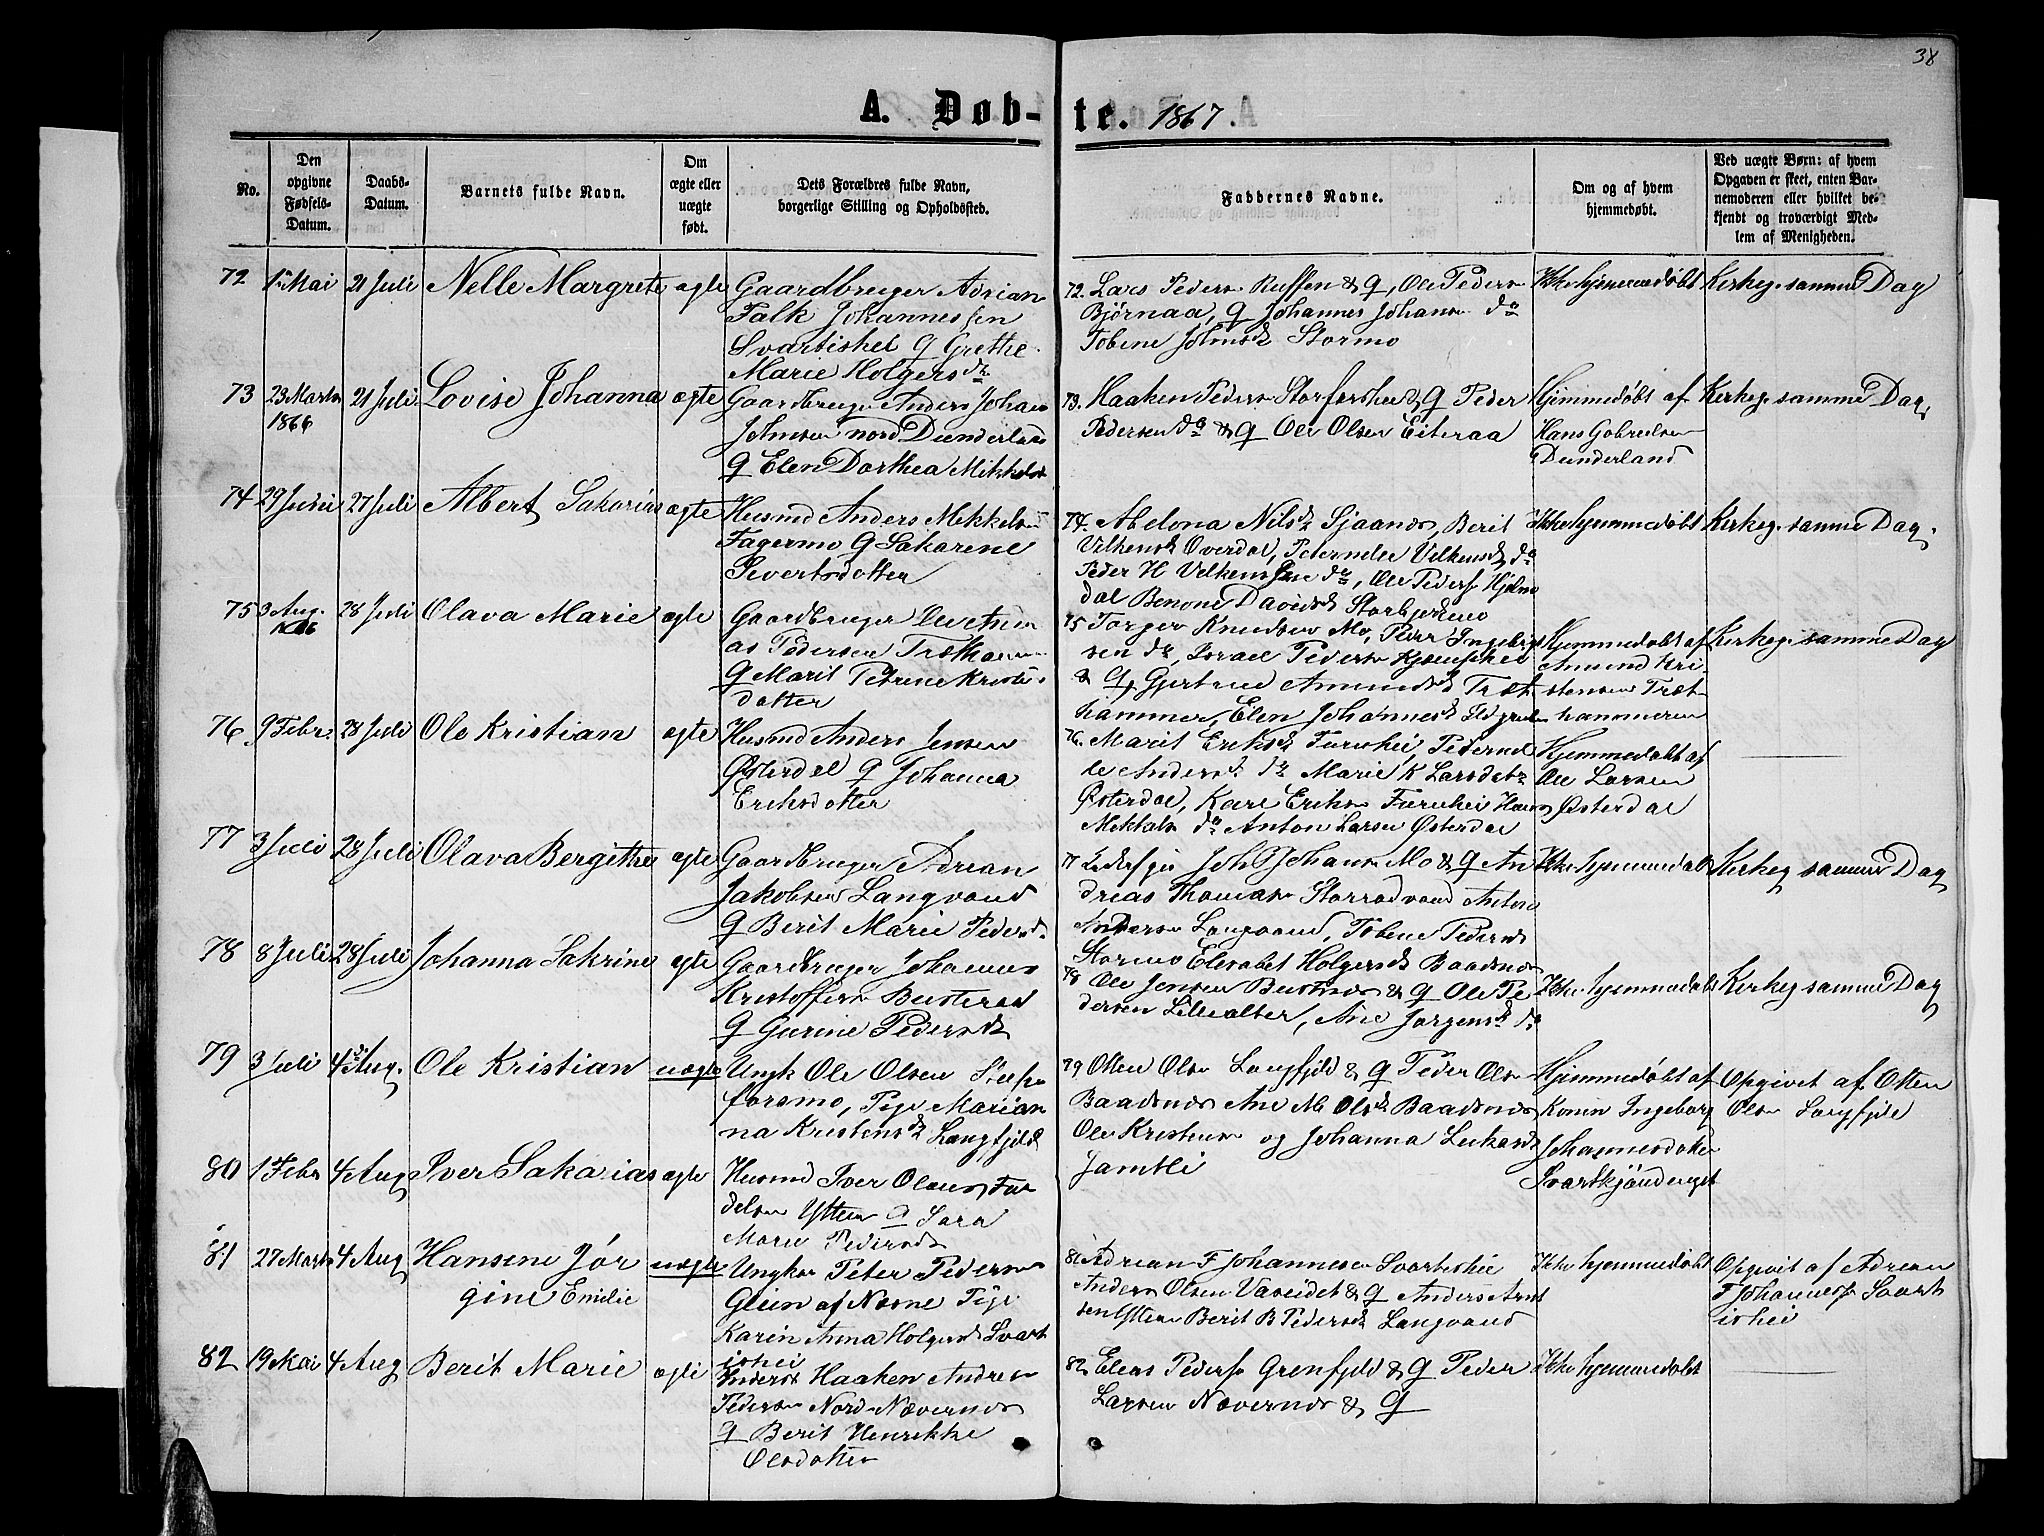 38
A. Døb-te. 1867
No.
Den
opgivne
Fødsels-
Datum.
Daabs-
Datum.
Barnets fulde Navn.
Om
ægte eller
uægte
født.
Dets Forældres fulde Navn,
borgerlige Stilling og Opholdssted.
Faddernes Navne.
Om og af hvem
hjemmedøbt.
Ved uægte Børn: af hvem
Opgaven er skeet, enten Bar-
nemoderen eller hvilket be-
kjendt og troværdigt Med-
lem af Menigheden.
72 1 Mai 21 Juli Nelle Margrete ægte Gaardbruger Adrian
Falk Johannessen
Svartishei g Grethe
Marie Holgersd
72. Lars Peders & g, Ole Peders
Bjørnaa, g Johannes Johans do
Tobene Johnsd Stormo
Ikke hjemmedøbt Kirkeg. samme Dag
73 23 Marts 21 Juli Lovise Johanna ægte Gaardbruger Anders Johan
1866
Johnsen nord Dunderland
g Elen Dorthea Mikkelsd
73. Haaken Peders Storforshei & g Peder
Pedersen do & g Ole Olsen Eiteraa
Hjemmedøbt af Kirkeg. samme Dag
Hans Gabrielsen
Dunderland
74 29 Juni 27 Juli Albert Sakarias ægte Husmd Anders Mikkelsen
Fagermo g Sakarene
Sivertsdotter
74. Abelona Nilsd Sjaanes, Berit
Velkensd Overdal, Peternelle Velkensd do
Peder H Velkens do, Ole Peders Hjelmo
dal Benone Davidsd Storbjerkmo
Ikke hjemmedøbt Kirkeg. samme Dag.
75 3 Aug. 28 Juli Olava Marie ægte Gaardbruger Ole Andre
1866
as Pedersen Træthammer
g Marit Petrine Kristens
datter
75 Torger Knudsen Mo, Peder Ingebrigt
sen do, Israel Peders
& g, Gjertrue Amundsd Træt
hammer, Elen Johannesd
Hjemmedøbt af Kirkeg. samme Dag
Amund Kri
stensen Træt
hammeren
76 9 Febr. 28 Juli Ole Kristian ægte Husmd Anders Jensen
Østerdal g Johanna
Eriksdotter
76. Marit Eriksd Furuhei, Peternel
le Andersd do Marie K Larsdatr
Østerdal, Karl Eriks Furuhei Hans
Mikkels do Anton Larsen Østerdal
Hjemmedøbt af
Ole Larsen
Østerdal
77 3 Juli 28 Juli Olava Bergithe ægte Gaardbruger Adrian
Jakobsen Langvand
g Berit Marie Pedersd.
77 Joh Johans Mo & g An
dreas Thomas Storradvand Anton
Anders Langvand, Tobene Pedersd
Stormo Elesabet Holgersd Baadsnes
Ikke hjemmedøbt Kirkeg samme Dag
78 8 Juli 28 Juli Johanna Sakrine ægte Gaardbruger Johannes
Kristoffersen Busterad
g Gurine Pedersd
78 Ole Jensen Bustnes & g Ole Pe
dersen Lillealter, Ane Jørgensd do
Ikke hjemmedøbt Kirkeg samme Dag
79 3 Juli 4 Aug. Ole Kristian uægte Ungk Ole Olsen
formo, Pige Marian
na Kristensd Langfjeld
79 Otten Olsen Langfjeld & g Peder Ols
Baadsnes Ane M Olsd Baadsnes
Ole Kristens og Johanna
Jamtli
Hjemmedøbt af
Konen Ingeborg
Johannesdotter
Opgivet af Otten
Olsen Langfjeld
80 1 Febr 4 Aug Iver Sakarias ægte Husmd Iver Olaus
Ytteren g Sara
Marie Pedersd
81 27 Marts 4 Aug Hansene Jør
gine Emilie
uægte Ungkar Peter Peders
Glein af Nesne Pige
Karin Anna Holgersd Svart
ishei
81 Adrian F Johannesen Svartishei
Anders Olsen Vaseidet & g Anders Arnt
sen Ytteren Berit B Pedersd Langvand
Ikke hjemmedøbt
Opgivet af Adrian
F Johannesen Svart
ishei
82 19 Mai 4 Aug Berit Marie ægte Inderst Haaken Andreas
Peders Nord Nævernes
g Berit Henrikke
Olsdotter
82 Elias Peders Grønfjeld & g Peder
Larsen Nævernes & g
Ikke hjemmedøbt